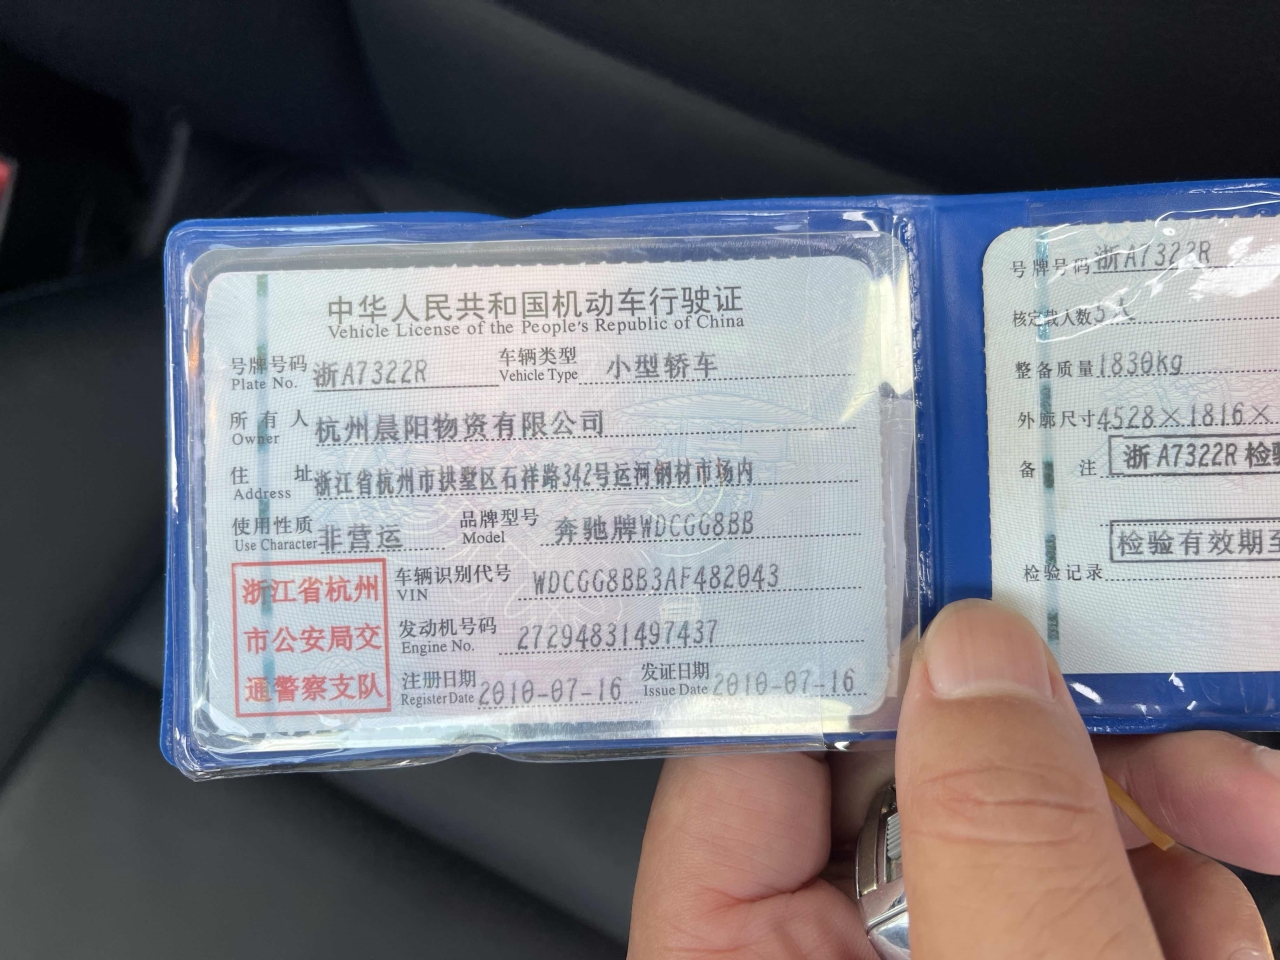 中华人民共和国机动车行驶证
Vehicle License of the People's Republic of China
号牌号码 浙A7322R 车辆类型 小型轿车
Plate No. Vehicle Type
所有人 杭州晨阳物资有限公司
Owner
住址 浙江省杭州市拱墅区石祥路342号运河钢材市场内
Address
使用性质 非营运 品牌型号 奔驰牌WDCGG8BB
Use Character Model
车辆识别代号 WDCGG8BB3AF482043
VIN
发动机号码 27294831497437
Engine No.
注册日期 2010-07-16 发证日期 2010-07-16
Register Date Issue Date
浙江省杭州
市公安局交
通警察支队
号牌号码 浙A7322R
核定载人数 5人
整备质量 1830kg
外廓尺寸 4528×1816×
备注 浙A7322R 检
检验有效期至
检验记录